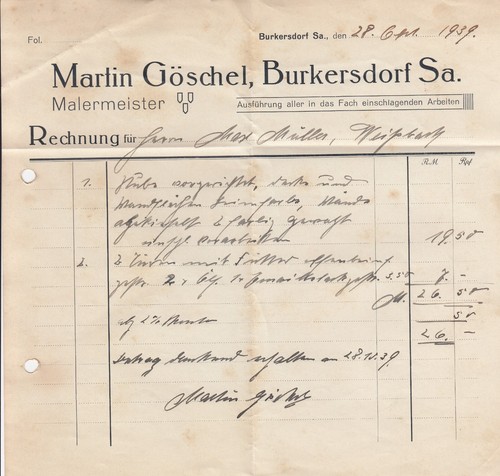 Fol.
Burkersdorf Sa., den 28. Okt. 1939.
Martin Göschel, Burkersdorf Sa.
Malermeister
Ausführung aller in das Fach einschlagenden Arbeiten
Rechnung für Herrn Max Müller, Weißbach
R.M. Pf
1. Stube vorgerichtet, Decke und
Wandflächen Leimfarbe, Wände
2 farbig
einschl. 19 50
2. 2 Türen mit Futter
3.50 7. -
M. 26. 50
2% 50
26. -
Betrag dankend erhalten am 28.10.39.
Martin Göschel